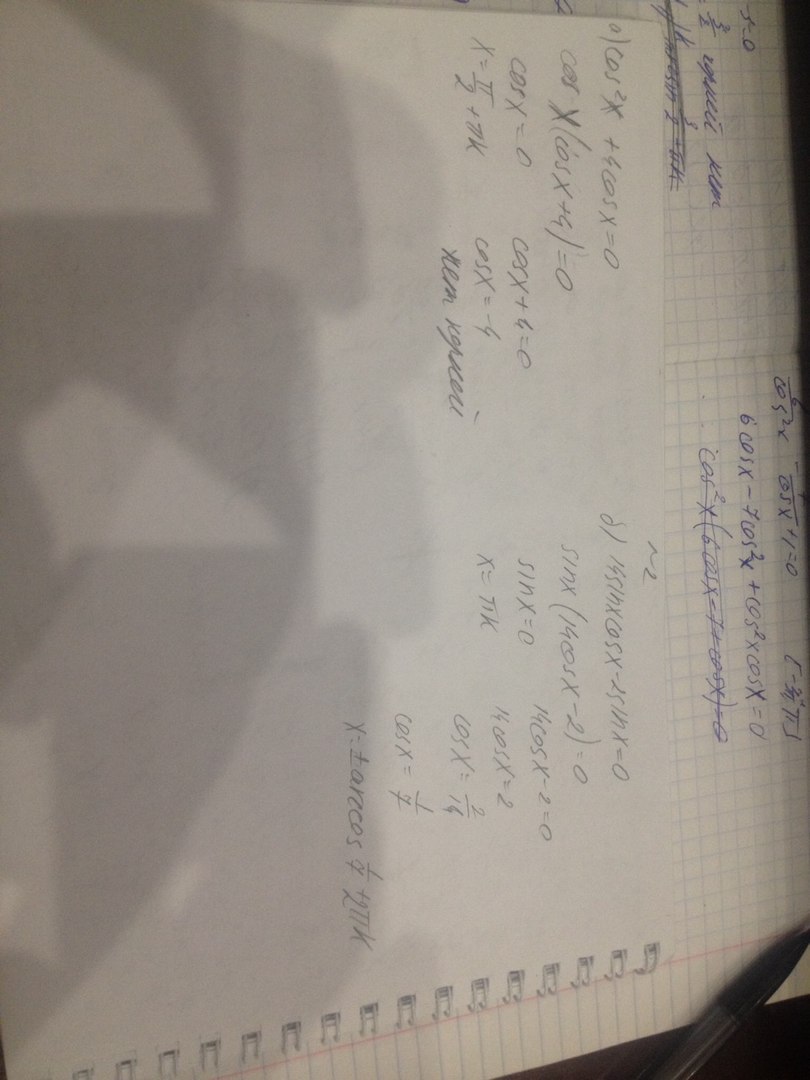 -5=0
= 3/2 корней нет
6/cos²x - 7/cosx + 1 = 0
6cosx - 7cos²x + cos²xcosx = 0
cos²x(6cosx - 7 + cosx) = 0
а) cos²x + 4cosx = 0
cosx(cosx+4) = 0
cosx = 0 cosx+4=0
x = π/2 + πk cosx = -4
нет корней
~2
б) 14sinxcosx - 2sinx = 0
sinx(14cosx - 2) = 0
sinx = 0 14cosx - 2 = 0
x = πk 14cosx = 2
cosx = 2/14
cosx = 1/7
x = ± arccos 1/7 + 2πk